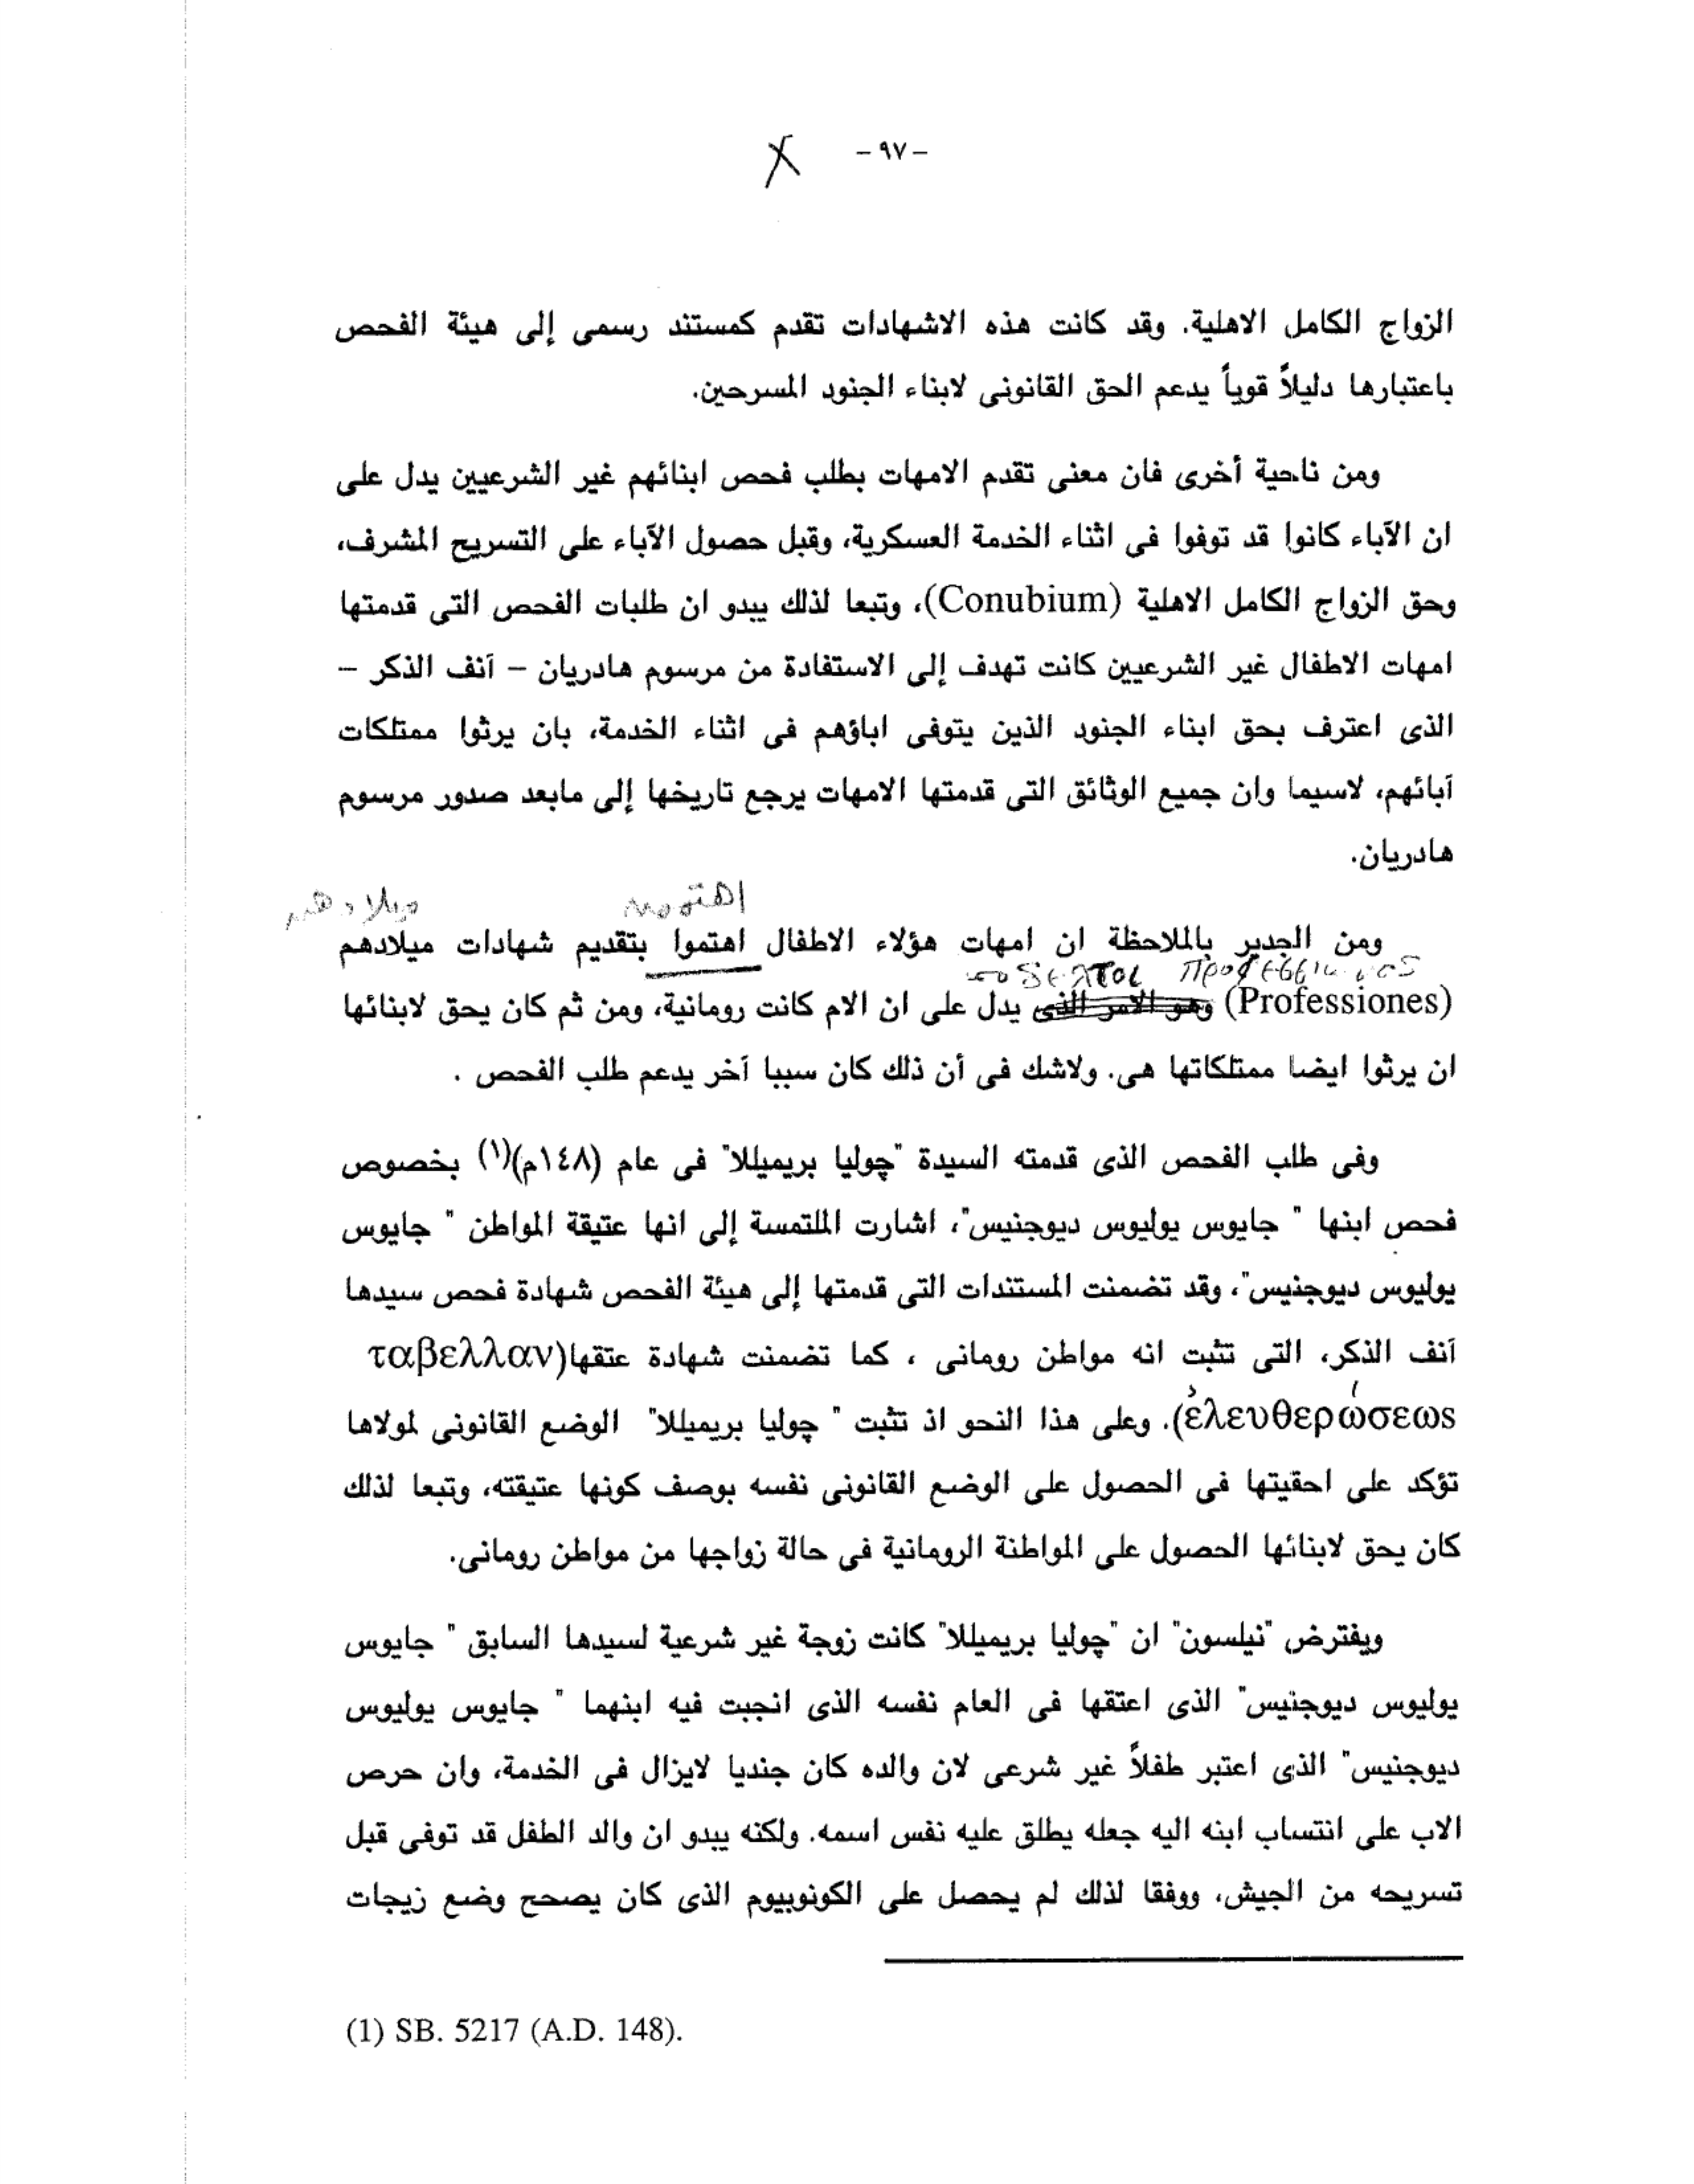 - ٩٧ -
الزواج الكامل الاهلية. وقد كانت هذه الاشهادات تقدم كمستند رسمى إلى هيئة الفحص
باعتبارها دليلاً قوياً يدعم الحق القانونى لابناء الجنود المسرحين.
ومن ناحية أخرى فان معنى تقدم الامهات بطلب فحص ابنائهم غير الشرعيين يدل على
ان الآباء كانوا قد توفوا فى اثناء الخدمة العسكرية، وقبل حصول الآباء على التسريح المشرف،
وحق الزواج الكامل الاهلية (Conubium)، وتبعا لذلك يبدو ان طلبات الفحص التى قدمتها
امهات الاطفال غير الشرعيين كانت تهدف إلى الاستفادة من مرسوم هادريان - آنف الذكر -
الذى اعترف بحق ابناء الجنود الذين يتوفى اباؤهم فى اثناء الخدمة، بان يرثوا ممتلكات
آبائهم، لاسيما وان جميع الوثائق التى قدمتها الامهات يرجع تاريخها إلى مابعد صدور مرسوم
هادريان.
ومن الجدير بالملاحظة ان امهات هؤلاء الاطفال اهتموا بتقديم شهادات ميلادهم
(Professiones) وهو الامر الذى يدل على ان الام كانت رومانية، ومن ثم كان يحق لابنائها
ان يرثوا ايضا ممتلكاتها هى. ولاشك فى أن ذلك كان سببا آخر يدعم طلب الفحص .
وفى طلب الفحص الذى قدمته السيدة "چوليا بريميللا" فى عام (١٤٨م)(١) بخصوص
فحص ابنها " جايوس يوليوس ديوجنيس"، اشارت الملتمسة إلى انها عتيقة المواطن " جايوس
يوليوس ديوجنيس"، وقد تضمنت المستندات التى قدمتها إلى هيئة الفحص شهادة فحص سيدها
آنف الذكر، التى تثبت انه مواطن رومانى ، كما تضمنت شهادة عتقها(ταβελλαν
ἐλευθερώσεως). وعلى هذا النحو اذ تثبت " چوليا بريميللا" الوضع القانونى لمولاها
تؤكد على احقيتها فى الحصول على الوضع القانونى نفسه بوصف كونها عتيقته، وتبعا لذلك
كان يحق لابنائها الحصول على المواطنة الرومانية فى حالة زواجها من مواطن رومانى.
ويفترض "نيلسون" ان "چوليا بريميللا" كانت زوجة غير شرعية لسيدها السابق " جايوس
يوليوس ديوجنيس" الذى اعتقها فى العام نفسه الذى انجبت فيه ابنهما " جايوس يوليوس
ديوجنيس" الذى اعتبر طفلاً غير شرعى لان والده كان جنديا لايزال فى الخدمة، وان حرص
الاب على انتساب ابنه اليه جعله يطلق عليه نفس اسمه. ولكنه يبدو ان والد الطفل قد توفى قبل
تسريحه من الجيش، ووفقا لذلك لم يحصل على الكونوبيوم الذى كان يصحح وضع زيجات
(1) SB. 5217 (A.D. 148).